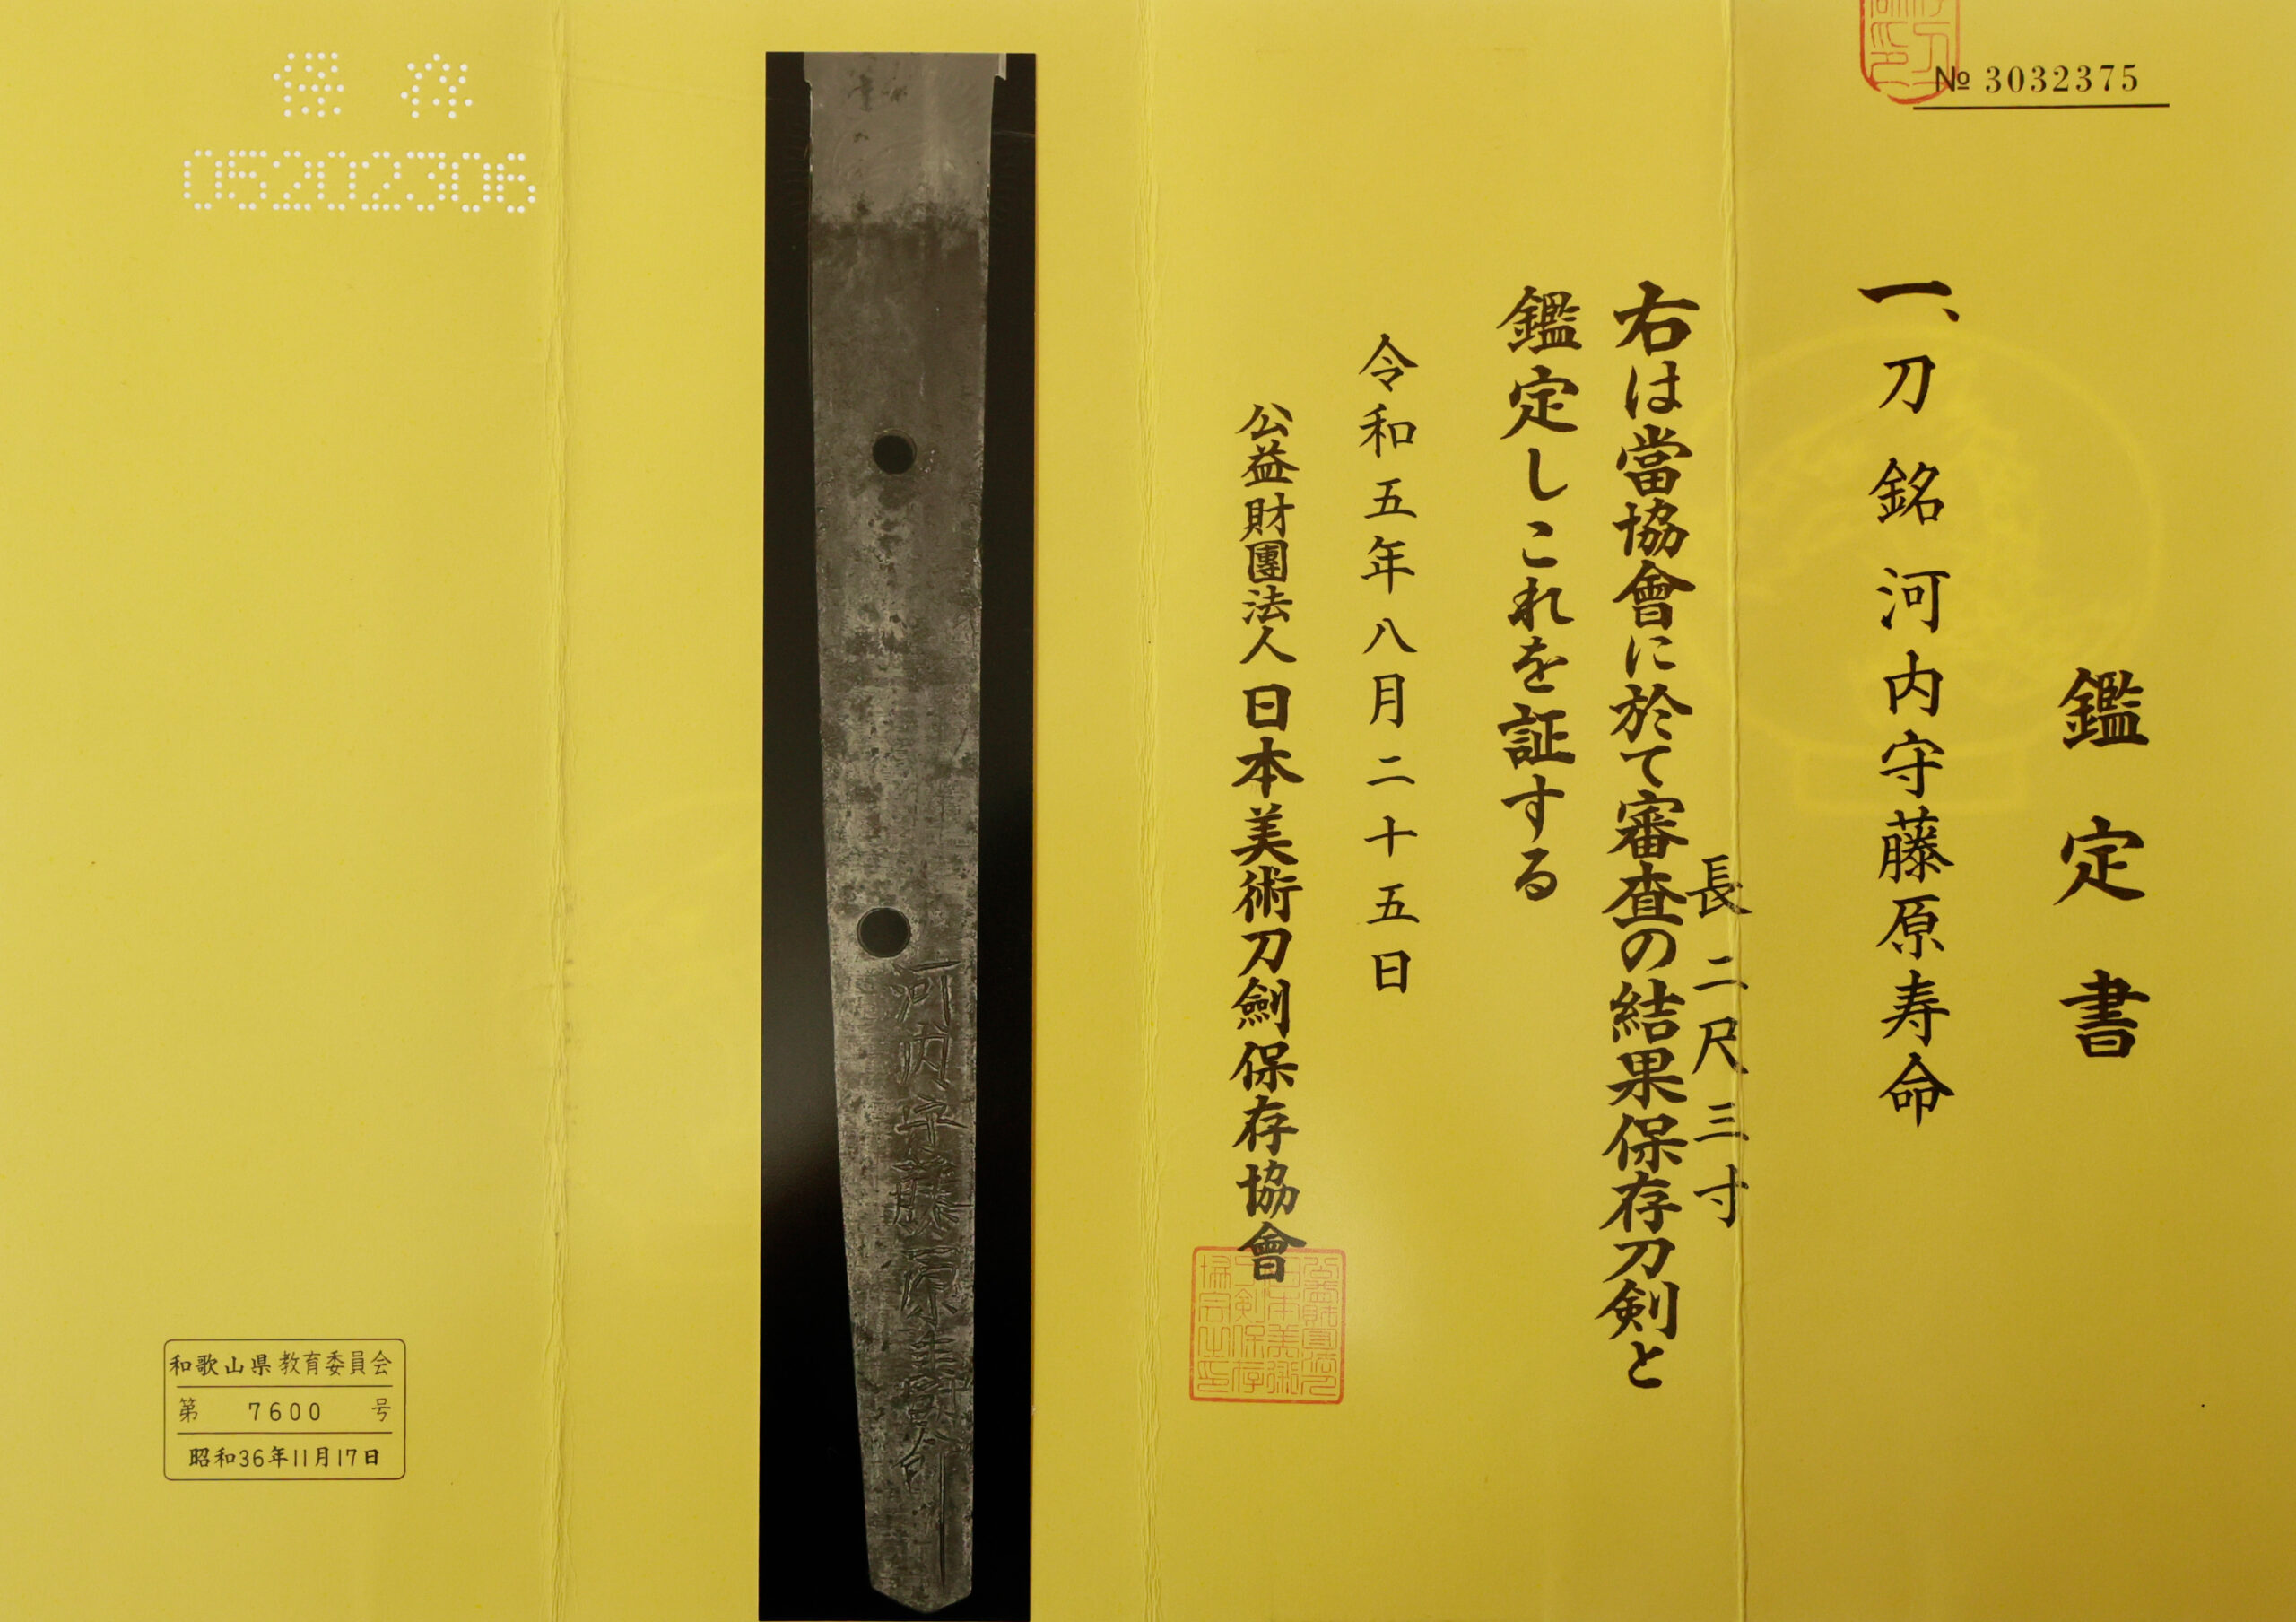 № 3032375
鑑定書
一、刀 銘 河内守藤原寿命
長 二尺三寸
右は當協會に於て審査の結果保存刀剣と
鑑定しこれを証する
令和五年八月二十五日
公益財團法人日本美術刀劍保存協會
河内守藤原寿命
保存
05202306
和歌山県教育委員会
第 7600 号
昭和36年11月17日